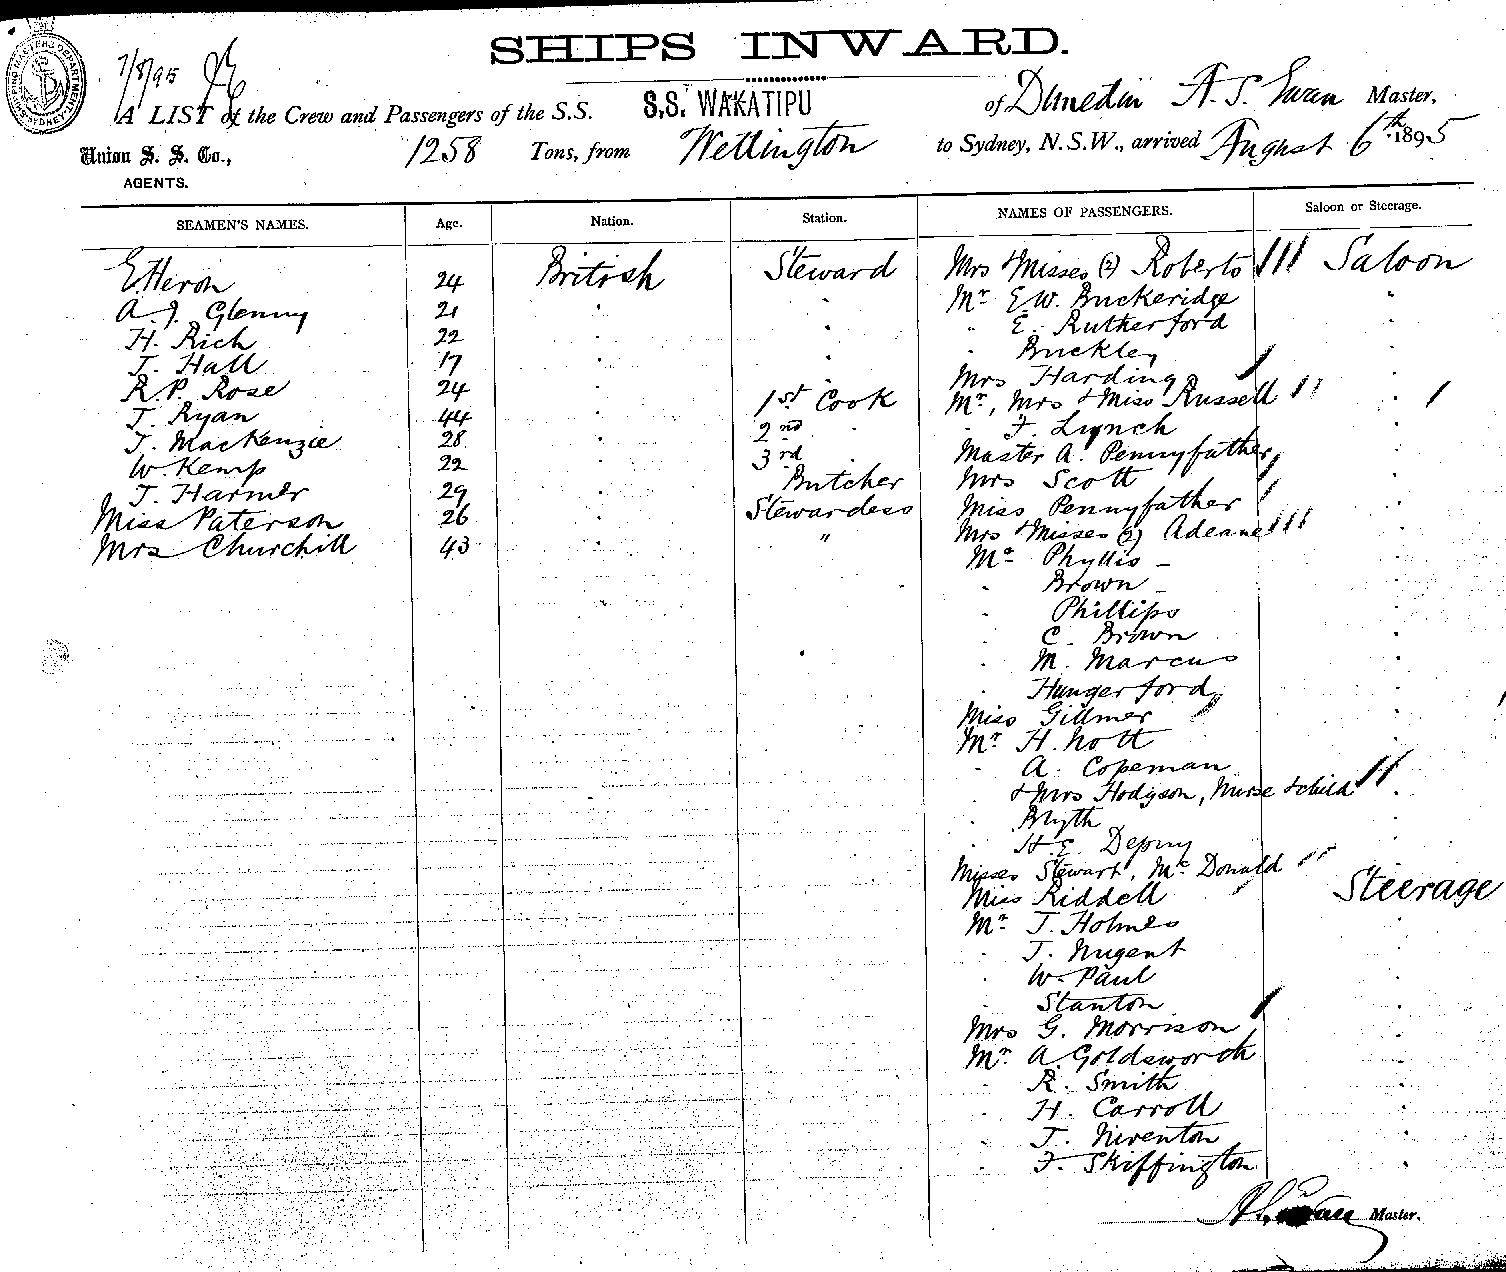 SHIPS INWARD.
7/8/95
A LIST of the Crew and Passengers of the S.S. S.S. WAKATIPU of Dunedin A. S. Swan Master,
Union S. S. Co., 1258 Tons, from Wellington to Sydney, N.S.W., arrived August 6th 1895
AGENTS.
SEAMEN'S NAMES. Age. Nation. Station. NAMES OF PASSENGERS. Saloon or Steerage.
E. Heron 24 British Steward Mrs & Misses (2) Roberts Saloon
A. J. Glenny 21 Mr E. W. Buckeridge "
H. Rich 22 " E. Rutherford
J. Hall 17 " Buckley
R. P. Rose 24 Mrs Harding
J. Ryan 44 1st Cook Mr, Mrs & Miss Russell
J. MacKenzie 28 2nd " " F. Lynch
W. Kemp 22 3rd " Master A. Pennyfather
J. Harmer 29 Butcher Mrs Scott
Miss Paterson 26 Stewardess Miss Pennyfather
Mrs Churchill 43 " Mrs & Misses (2) Adeane
Mr Phyllis
" Brown
" Phillips
" C. Brown
" M. Marcus
" Hungerford
Miss Gillmer
Mr H. Nott
" A. Copeman
" & Mrs Hodgson, Nurse & child
" Blyth
" H. E.
Misses Stewart, McDonald
Miss Riddell Steerage
Mr J. Holmes
" J. Nugent
" W. Paul
" Stanton
Mrs G. Morrison
Mr A. Goldsworth
" R. Smith
" H. Carroll
" J. Niventon
" F. Skiffington
Master.